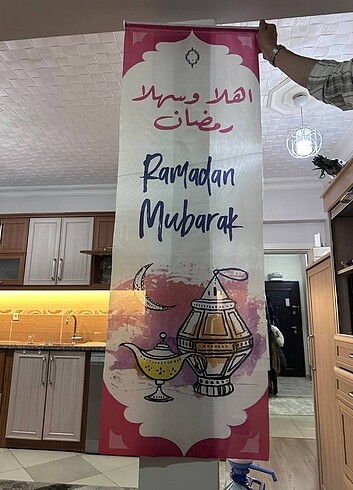 اهلا وسهلا
رمضان
Ramadan
Mubarak